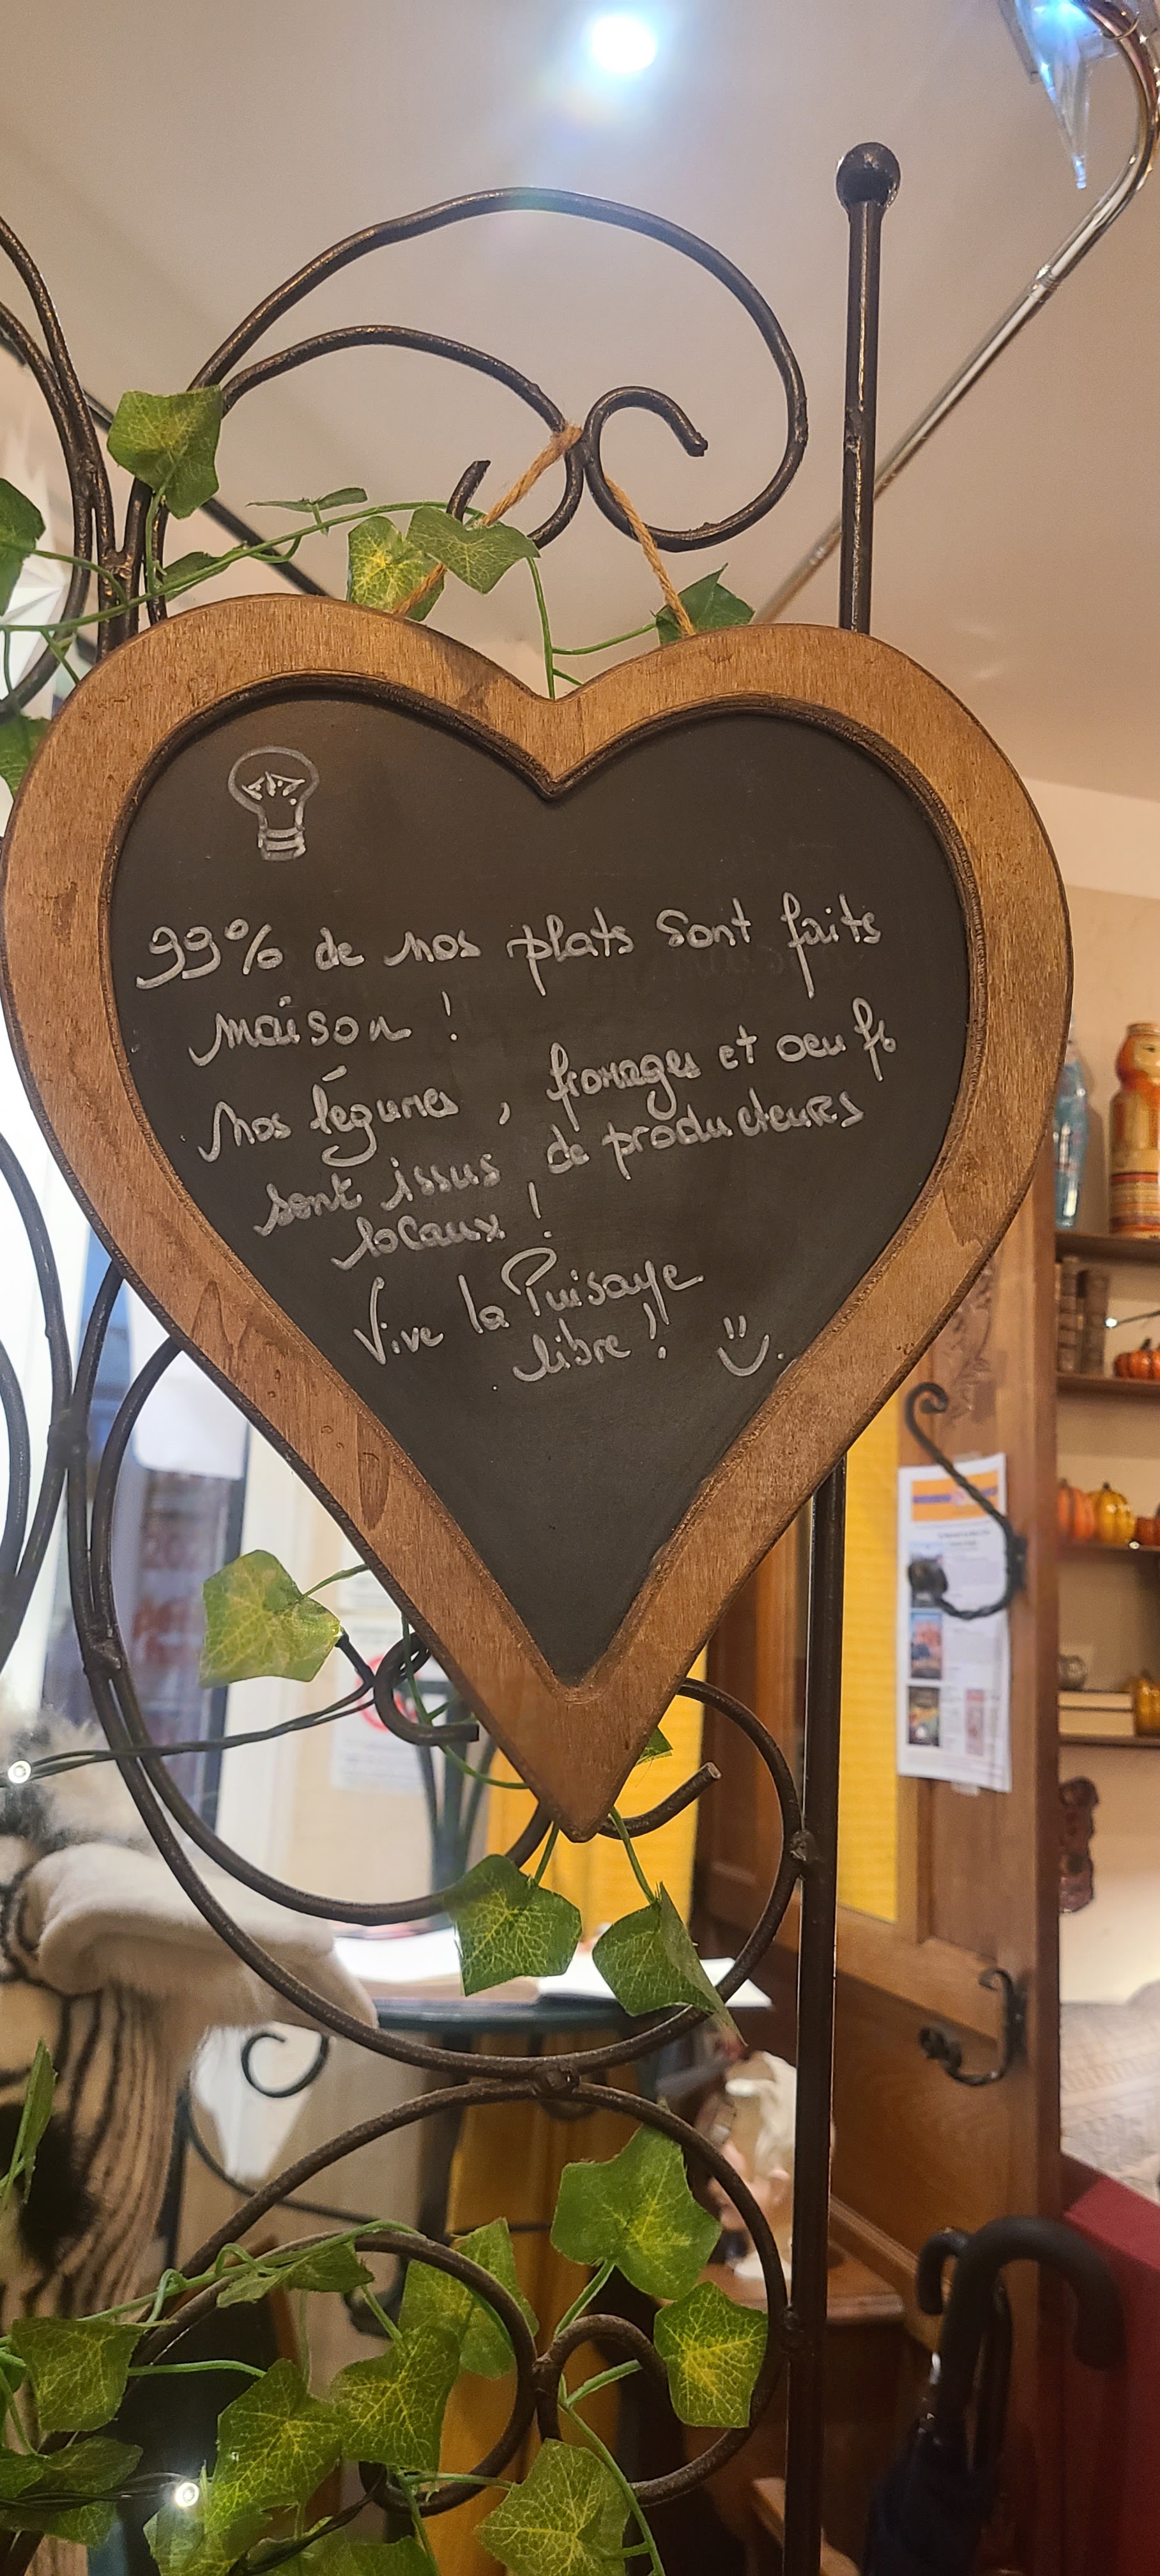 99% de nos plats sont faits
maison !
Nos légumes, fromages et oeufs
sont issus de producteurs
locaux !
Vive la Puisaye
libre !